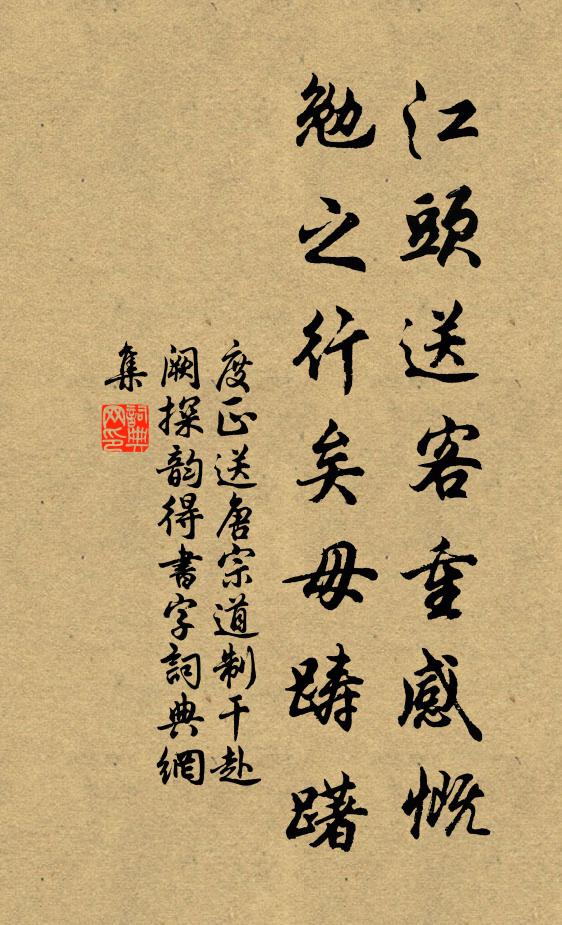 江頭送客重感慨
勉之行矣毋躊躇
度正送唐宗道制干赴
闕探韵得書字詞典網
集
詞典
网印